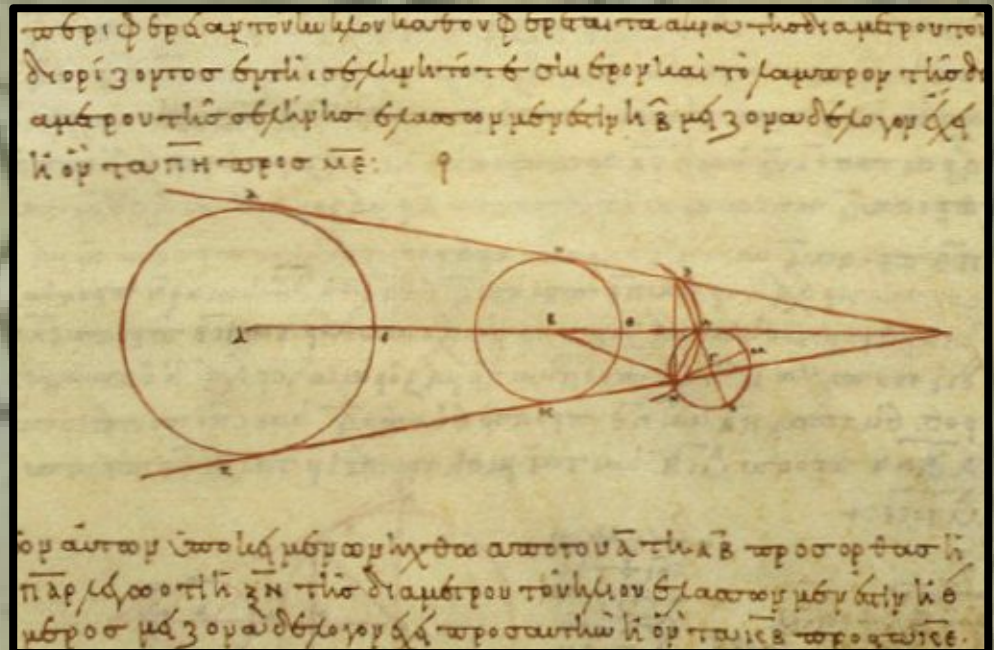 τὸν κύκλον καθ ὃν φέρεται τὰ ἄκρα τῆς διαμέτρου τοῦ
διορίζοντος ἐν τῆι σελήνηι τό τε σκιερὸν καὶ τὸ λαμπρὸν τῆς δι
αμέτρου τῆς σελήνης ἐλάσσων μέν ἐστιν ἢ β̅ μείζονα δὲ λόγον ἔχει
ἢ ὃν τὰ π̅η̅ πρὸς μ̅ε̅:
αὐτῶν ὑποκειμένων ἤχθω ἀπὸ τοῦ α̅ τῆι α̅β̅ πρὸς ὀρθὰς ἡ
π̅α̅ρ̅ λέγω ὅτι ἡ ξ̅ν̅ τῆς διαμέτρου τοῦ ἡλίου ἐλάσσων μέν ἐστιν ἢ θ
μέρος μείζονα δὲ λόγον ἔχει πρὸς αὐτὴν ἢ ὃν τὰ κ̅β̅ πρὸς